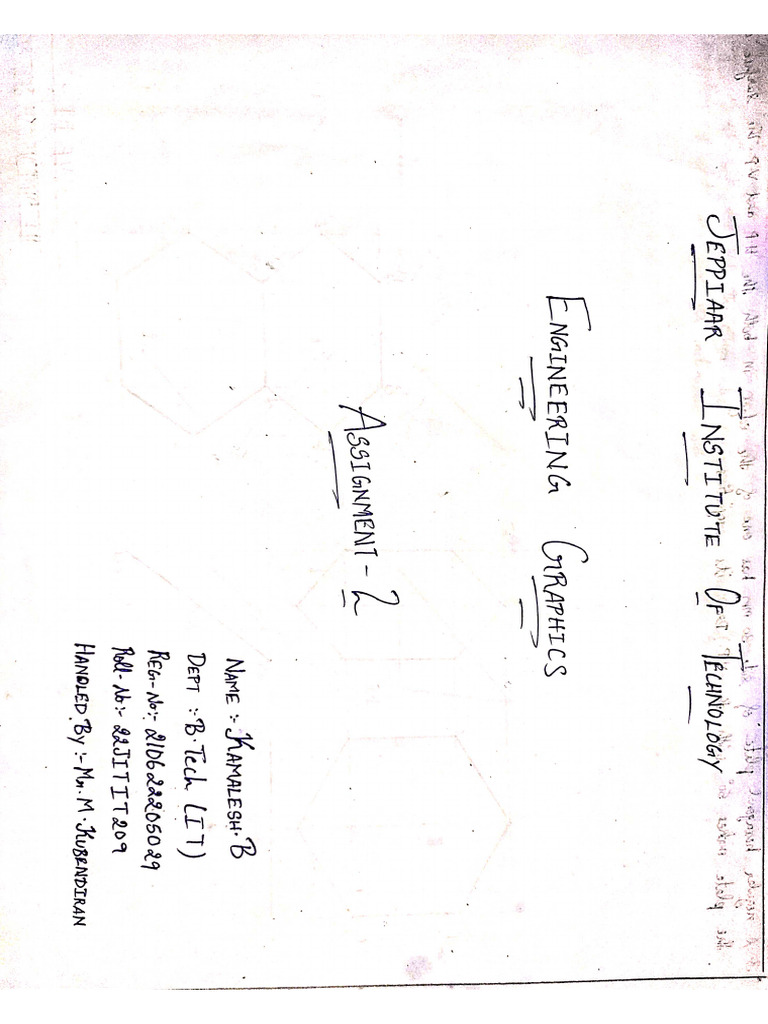 JEPPIAAR INSTITUTE OF TECHNOLOGY
ENGINEERING GRAPHICS
ASSIGNMENT-2
NAME :- KAMALESH.B
DEPT :- B.Tech (IT)
REG-No:- 210622205029
Roll-No:- 22JITIT209
HANDLED By :- Mr. M. KUBENDIRAN